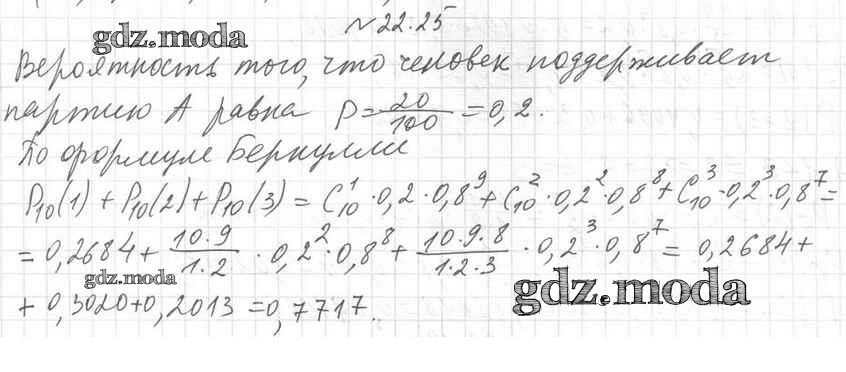 №22.25
gdz.moda
Вероятность того, что человек поддерживает
партию А равна P=20/100=0,2.
По формуле Бернулли
P₁₀(1)+P₁₀(2)+P₁₀(3)=C₁₀¹·0,2·0,8⁹+C₁₀²·0,2²·0,8⁸+C₁₀³·0,2³·0,8⁷=
=0,2684+(10·9)/(1·2)·0,2²·0,8⁸+(10·9·8)/(1·2·3)·0,2³·0,8⁷=0,2684+
gdz.moda
gdz.moda
+0,3020+0,2013=0,7717.